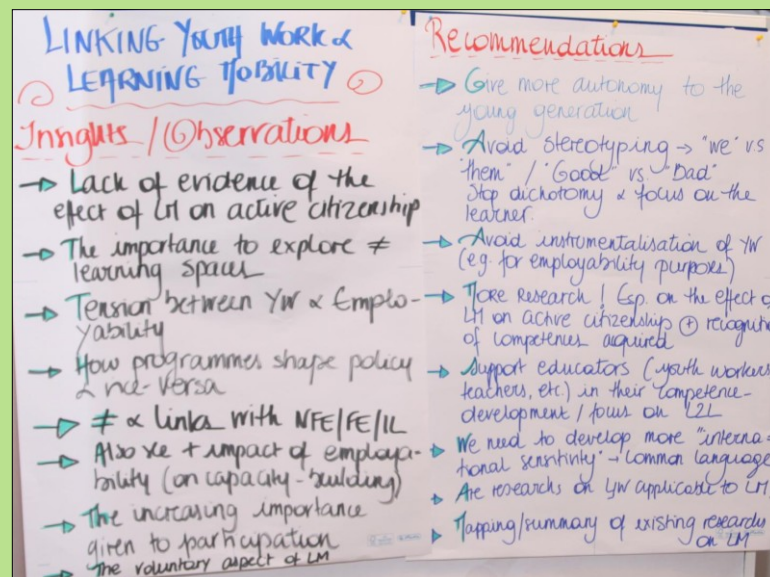 LINKING YOUTH WORK &
LEARNING MOBILITY
Insights / Observations
→ Lack of evidence of the
effect of LM on active citizenship
→ The importance to explore ≠
learning spaces
→ Tension between YW & Emplo-
yability
→ How programmes shape policy
& vice-versa
→ ≠ & links with NFE/FE/IL
→ Also + impact of employa-
bility (on capacity-building)
→ The increasing importance
given to participation
→ The voluntary aspect of LM
Recommendations
→ Give more autonomy to the
young generation
→ Avoid stereotyping → "we" vs
"them" / "Good" vs. "Bad"
Stop dichotomy & focus on the
learner.
→ Avoid instrumentalisation of YW
(e.g. for employability purposes)
→ More Research! Esp. on the effect of
LM on active citizenship ⊕ recogniti
of competences acquired
→ Support educators (youth workers
teachers, etc.) in their competence-
development / focus on L2L
→ We need to develop more "interna-
tional sensitivity" → common language
→ Are researchs on YW applicable to LM
→ Mapping/summary of existing researchs
on LM